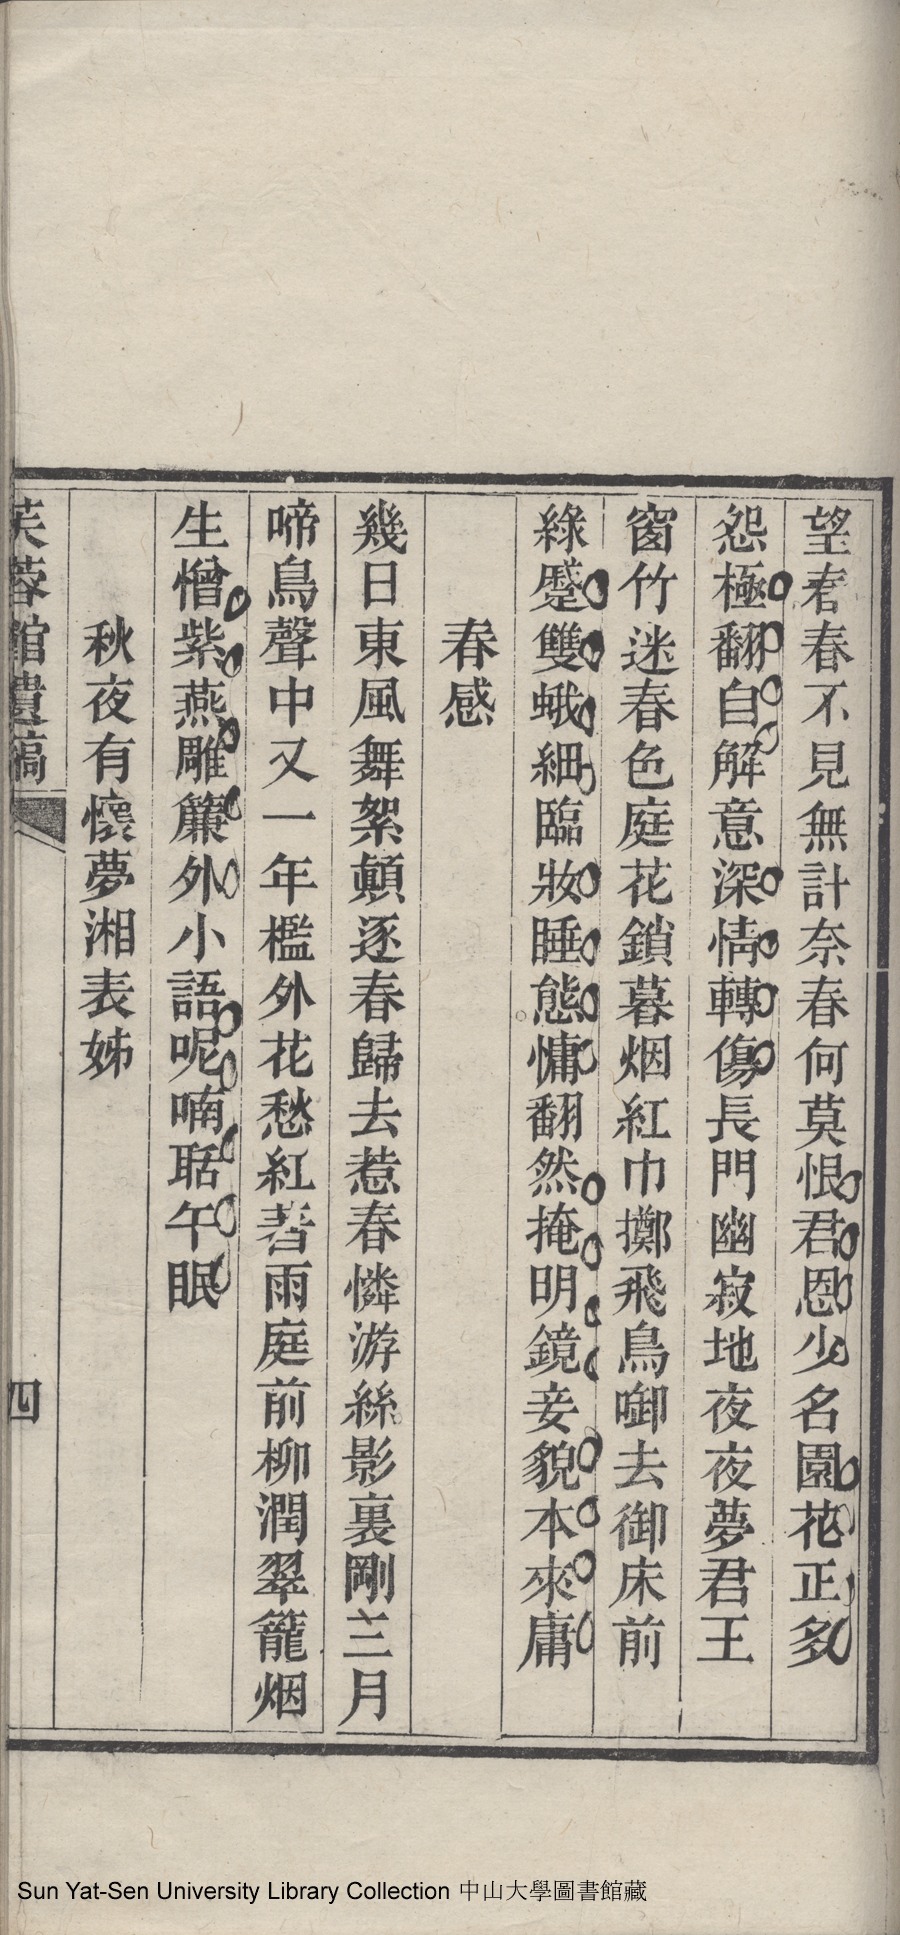 望春春不見無計奈春何莫恨君恩少名園花正多
怨極翻自解意深情轉傷長門幽寂地夜夜夢君王
窗竹迷春色庭花鎖暮烟紅巾擲飛鳥啣去御床前
綠蹙雙蛾細臨妝睡態慵翻然掩明鏡妾貌本來庸
春感
幾日東風舞絮顛逐春歸去惹春憐游絲影裏剛三月
啼鳥聲中又一年檻外花愁紅著雨庭前柳潤翠籠烟
生憎紫燕雕簾外小語呢喃聒午眠
秋夜有懷夢湘表姊
芙蓉館遺稿
四
Sun Yat-Sen University Library Collection 中山大學圖書館藏